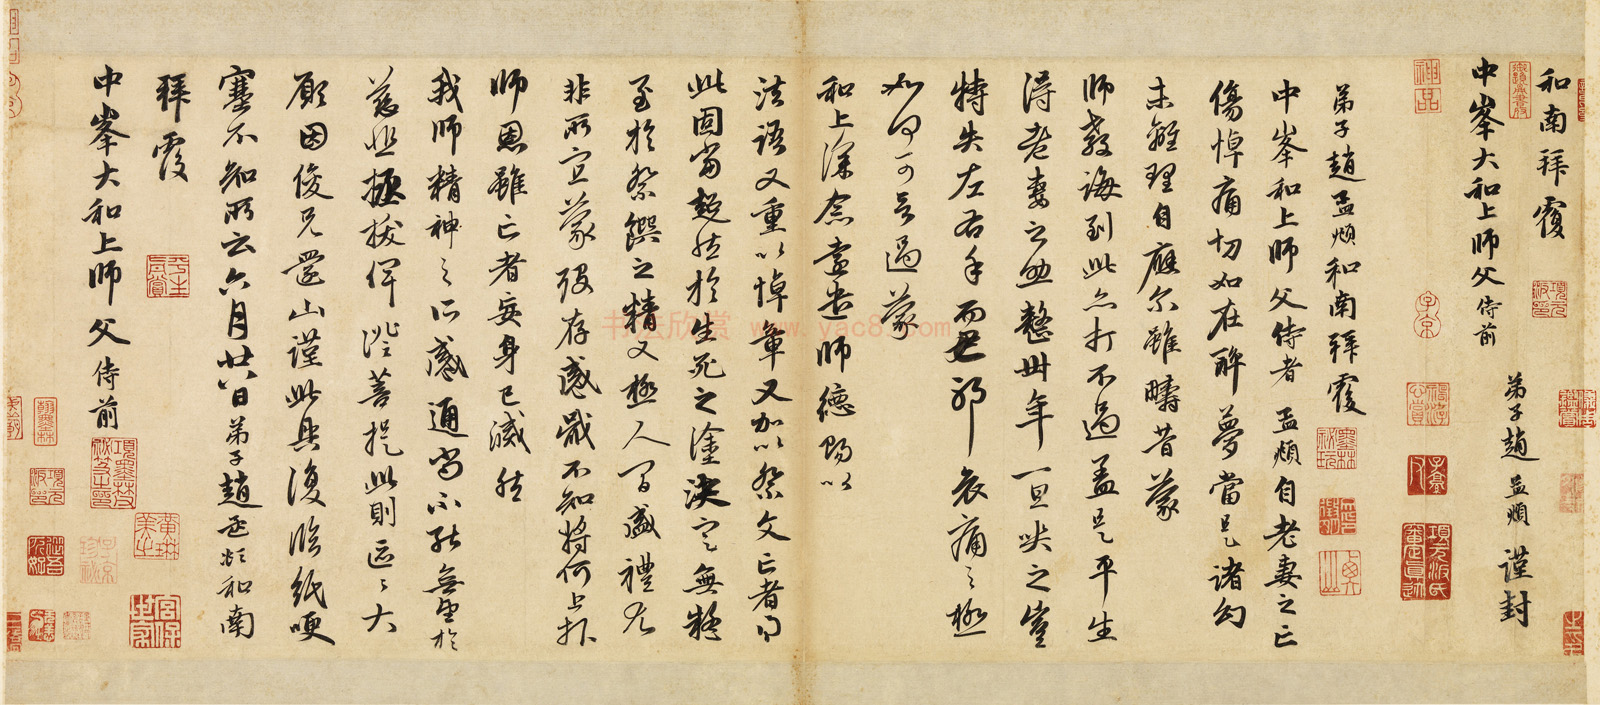 和南拜覆
中峯大和上師父侍前
弟子趙孟頫謹封
弟子趙孟頫和南拜覆
中峯和上師父侍者孟頫自老妻之亡
傷悼痛切如在醉夢當是諸幻
未離理自應尔雖疇昔蒙
師教誨到此亦打不過蓋是平生
得老妻之助整卅年一旦哭之豈
特失左右手而已耶哀痛之極
如何可言過蒙
和上深念師德賜以
法語又重以悼章又加以祭文亡者得
此固當超然於生死之塗決定無疑
至於祭饌之精又極人間盛禮尤
非所宜蒙歿存感戴不知將何上報
師恩雖亡者妄身已滅然
我師精神之所感通尚不能無望於
慈悲拯拔俾證菩提此則區區大
願因俊兄還山謹此具復臨紙哽
塞不知所云六月廿八日弟子趙孟頫和南
拜覆
中峯大和上師父侍前
书法欣赏 www.yac8.com